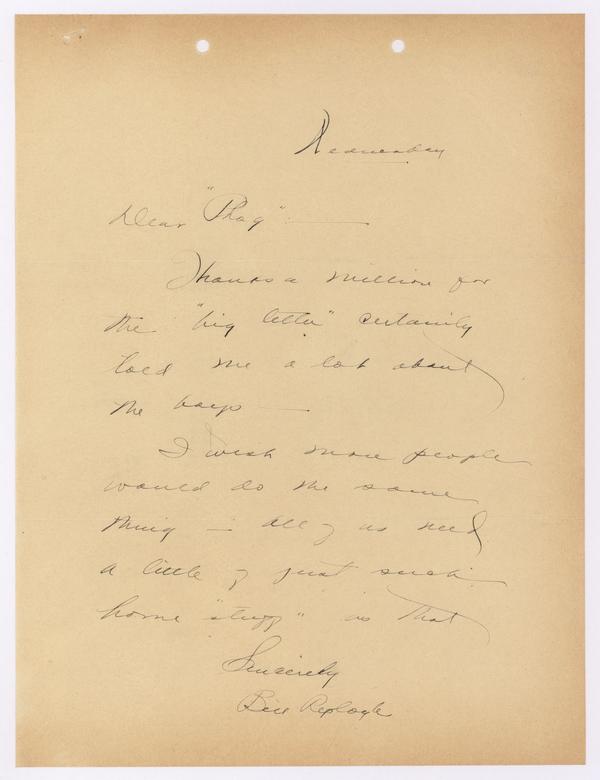 Wednesday
Dear "Phog":—
Thanks a million for
the "big letter" certainly
told me a lot about
the boys —
I wish more people
would do the same
thing — all of us need
a little of just such
home "stuff" as that
Sincerely
Bill Replogle